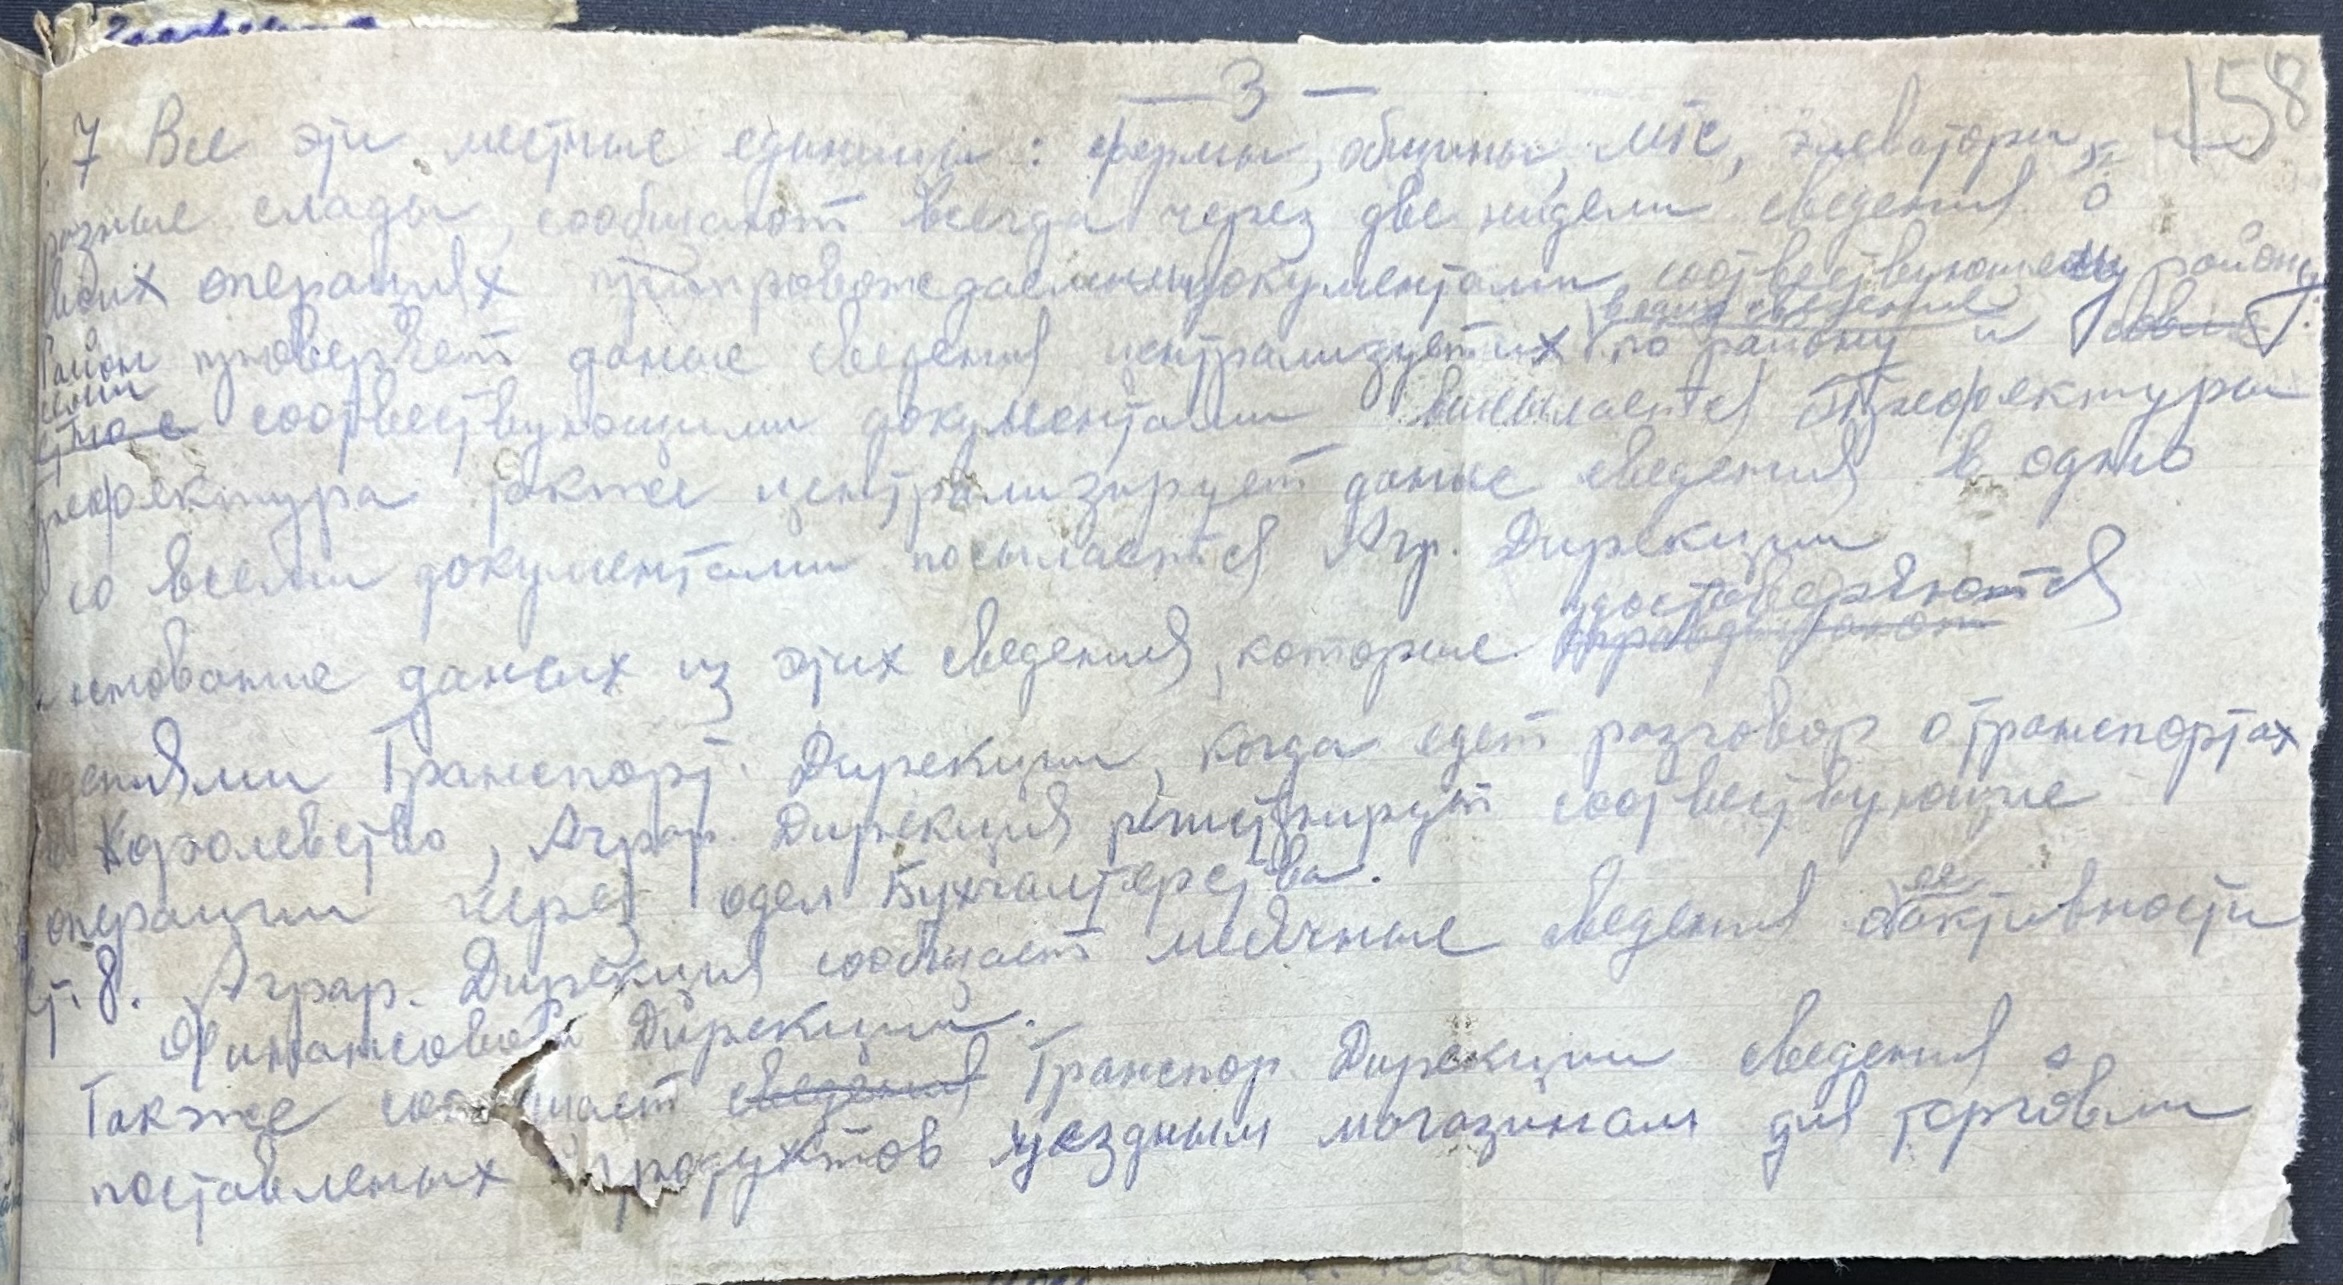 — 3 —
158
7 Все эти местные единицы: фермы, общины, МТС, элеваторы, и
разные склады, сообщают всегда через две недели сведения о
своих операциях припровождаемыми документами, соответствующему району.
Район проверяет даные сведения централизует их по району и
всеих сведение
соответствующими документами высылается Префектуры
Префектура также централизирует даные сведения в одно
со всеми документами посылается Агр. Дирекции
даных из этих сведения, которые удостоверяются
Транспорт. Дирекции, когда едет разговор о транспортах
в Королевство, Аграр. Дирекция регистрирует соответствующие
операции через одел Бухгалтерства.
ст. 8. Аграр. Дирекция сообщает месячные сведения о ее активности
Финансовой Дирекции.
Также сообщает сведения Транспор. Дирекции сведения о
поставленых продуктов уездным магазинам для торговли